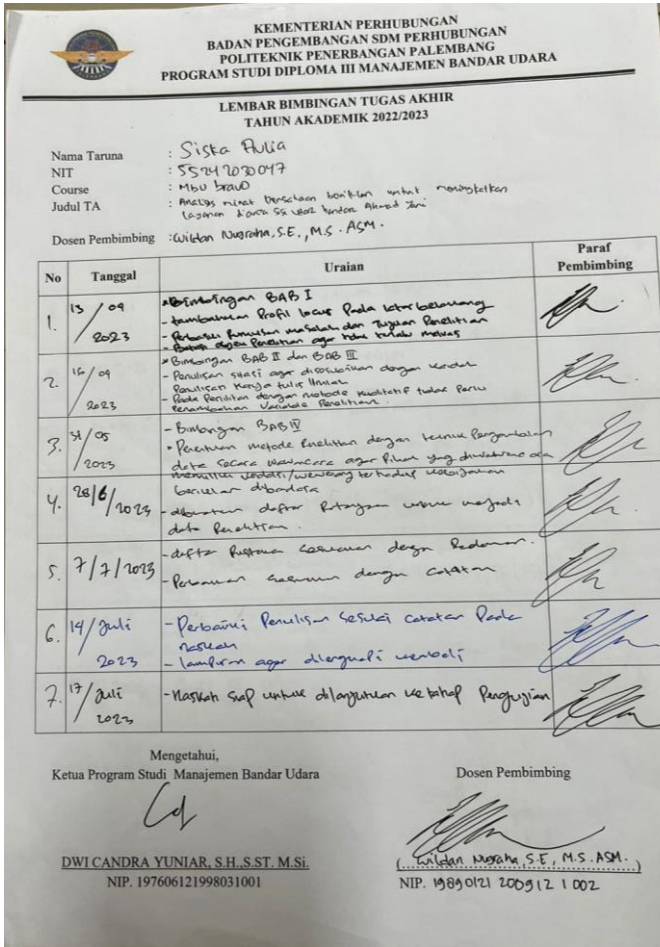 KEMENTERIAN PERHUBUNGAN
BADAN PENGEMBANGAN SDM PERHUBUNGAN
POLITEKNIK PENERBANGAN PALEMBANG
PROGRAM STUDI DIPLOMA III MANAJEMEN BANDAR UDARA
LEMBAR BIMBINGAN TUGAS AKHIR
TAHUN AKADEMIK 2022/2023
Nama Taruna : Siska Aulia
NIT : 55242030047
Course : MBU bravo
Judul TA : Analisis minat perusahaan beriklan untuk meningkatkan
layanan di bandar Ahmad Yani
Dosen Pembimbing : Wildan Nugraha, S.E., M.S. ASM.
No Tanggal Uraian Paraf Pembimbing
1. 13/04 2023 Bimbingan BAB I
- tambahkan Profil locus Pada latar belakang
- Perbaiki Rumusan masalah dan Tujuan Penelitian
- Batasi objek Penelitian agar tidak terlalu meluas
2. 16/04 2023 Bimbingan BAB II dan BAB III
- Penulisan agar disesuaikan dengan
Penulisan Karya tulis Ilmiah
- Pada Penelitian dengan metode kualitatif tidak Perlu
Penambahan Variable Penelitian.
3. 31/05 2023 - Bimbingan BAB IV
- Penentuan metode Penelitian dengan teknik Pengambilan
data secara wawancara agar Pihak yang
memiliki /wewenang terhadap
beriklan dibandara
4. 28/6/2023 - daftar Pertanyaan untuk menjadi
data Penelitian.
5. 7/7/2023 - daftar Pustaka sesuaikan dengan Pedoman.
- Perbaikan sesuaikan dengan catatan
6. 14/Juli 2023 - Perbaiki Penulisan sesuai catatan Pada
naskah
- lampiran agar dilengkapi kembali
7. 17/Juli 2023 - Naskah siap untuk dilanjutkan ke tahap Pengujian
Mengetahui,
Ketua Program Studi Manajemen Bandar Udara
Dosen Pembimbing
DWI CANDRA YUNIAR, S.H.,S.ST. M.Si.
NIP. 197606121998031001
(Wildan Nugraha, S.E, M.S. ASM.)
NIP. 19890121 200912 1 002